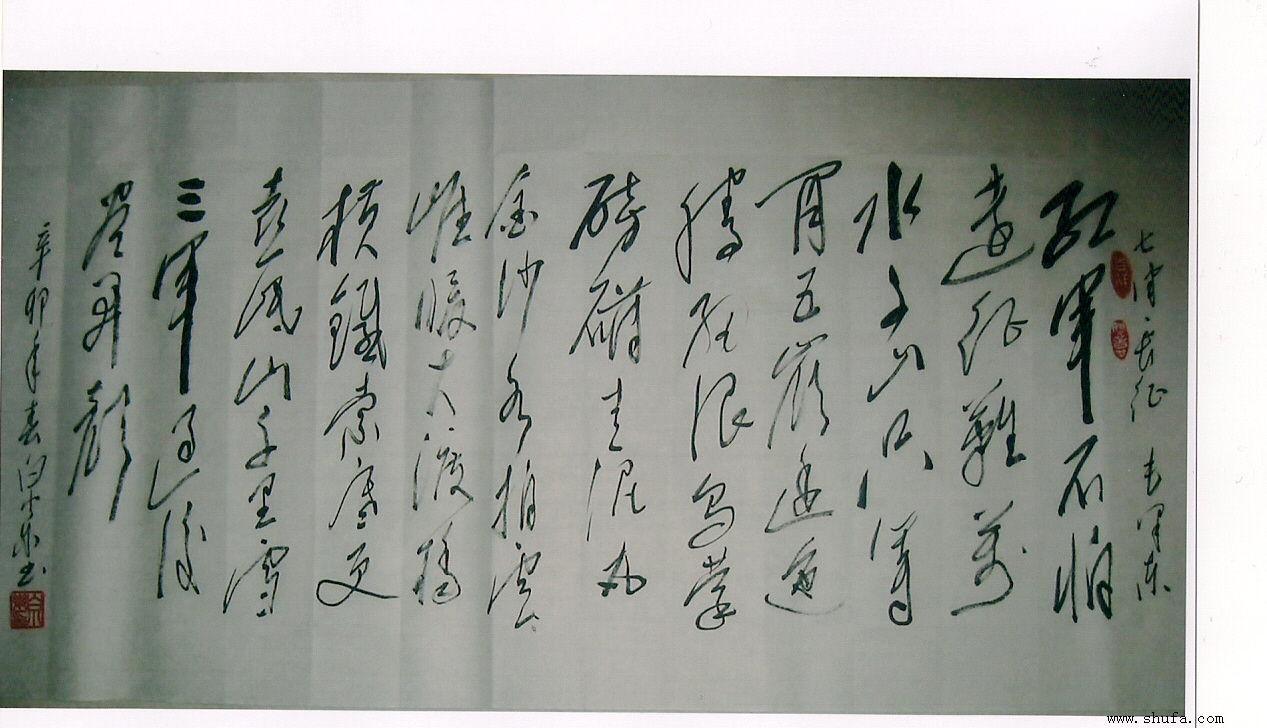 七律 长征 毛泽东
红軍不怕
遠征難萬
水千山只等
闲五嶺逶迤
腾细浪乌蒙
磅礴走泥丸
金沙水拍雲
崖暖大渡橋
横鐵索寒更
喜岷山千里雪
三軍过後
盡开颜
辛卯年春 书
www.shufa.com